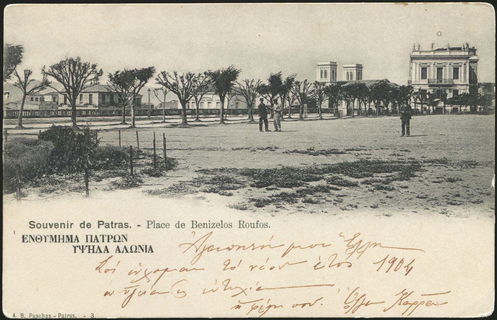 Souvenir de Patras. - Place de Benizelos Roufos.
ΕΝΘΥΜΗΜΑ ΠΑΤΡΩΝ
ΥΨΗΛΑ ΑΛΩΝΙΑ
Ἀγαπητή μου Ἕλλη
Σοί εὔχομαι τό νέον ἔτος 1904
ὑγείαν εὐτυχίαν
ἡ φίλη σου
A. B. Paschas - Patras. - 3